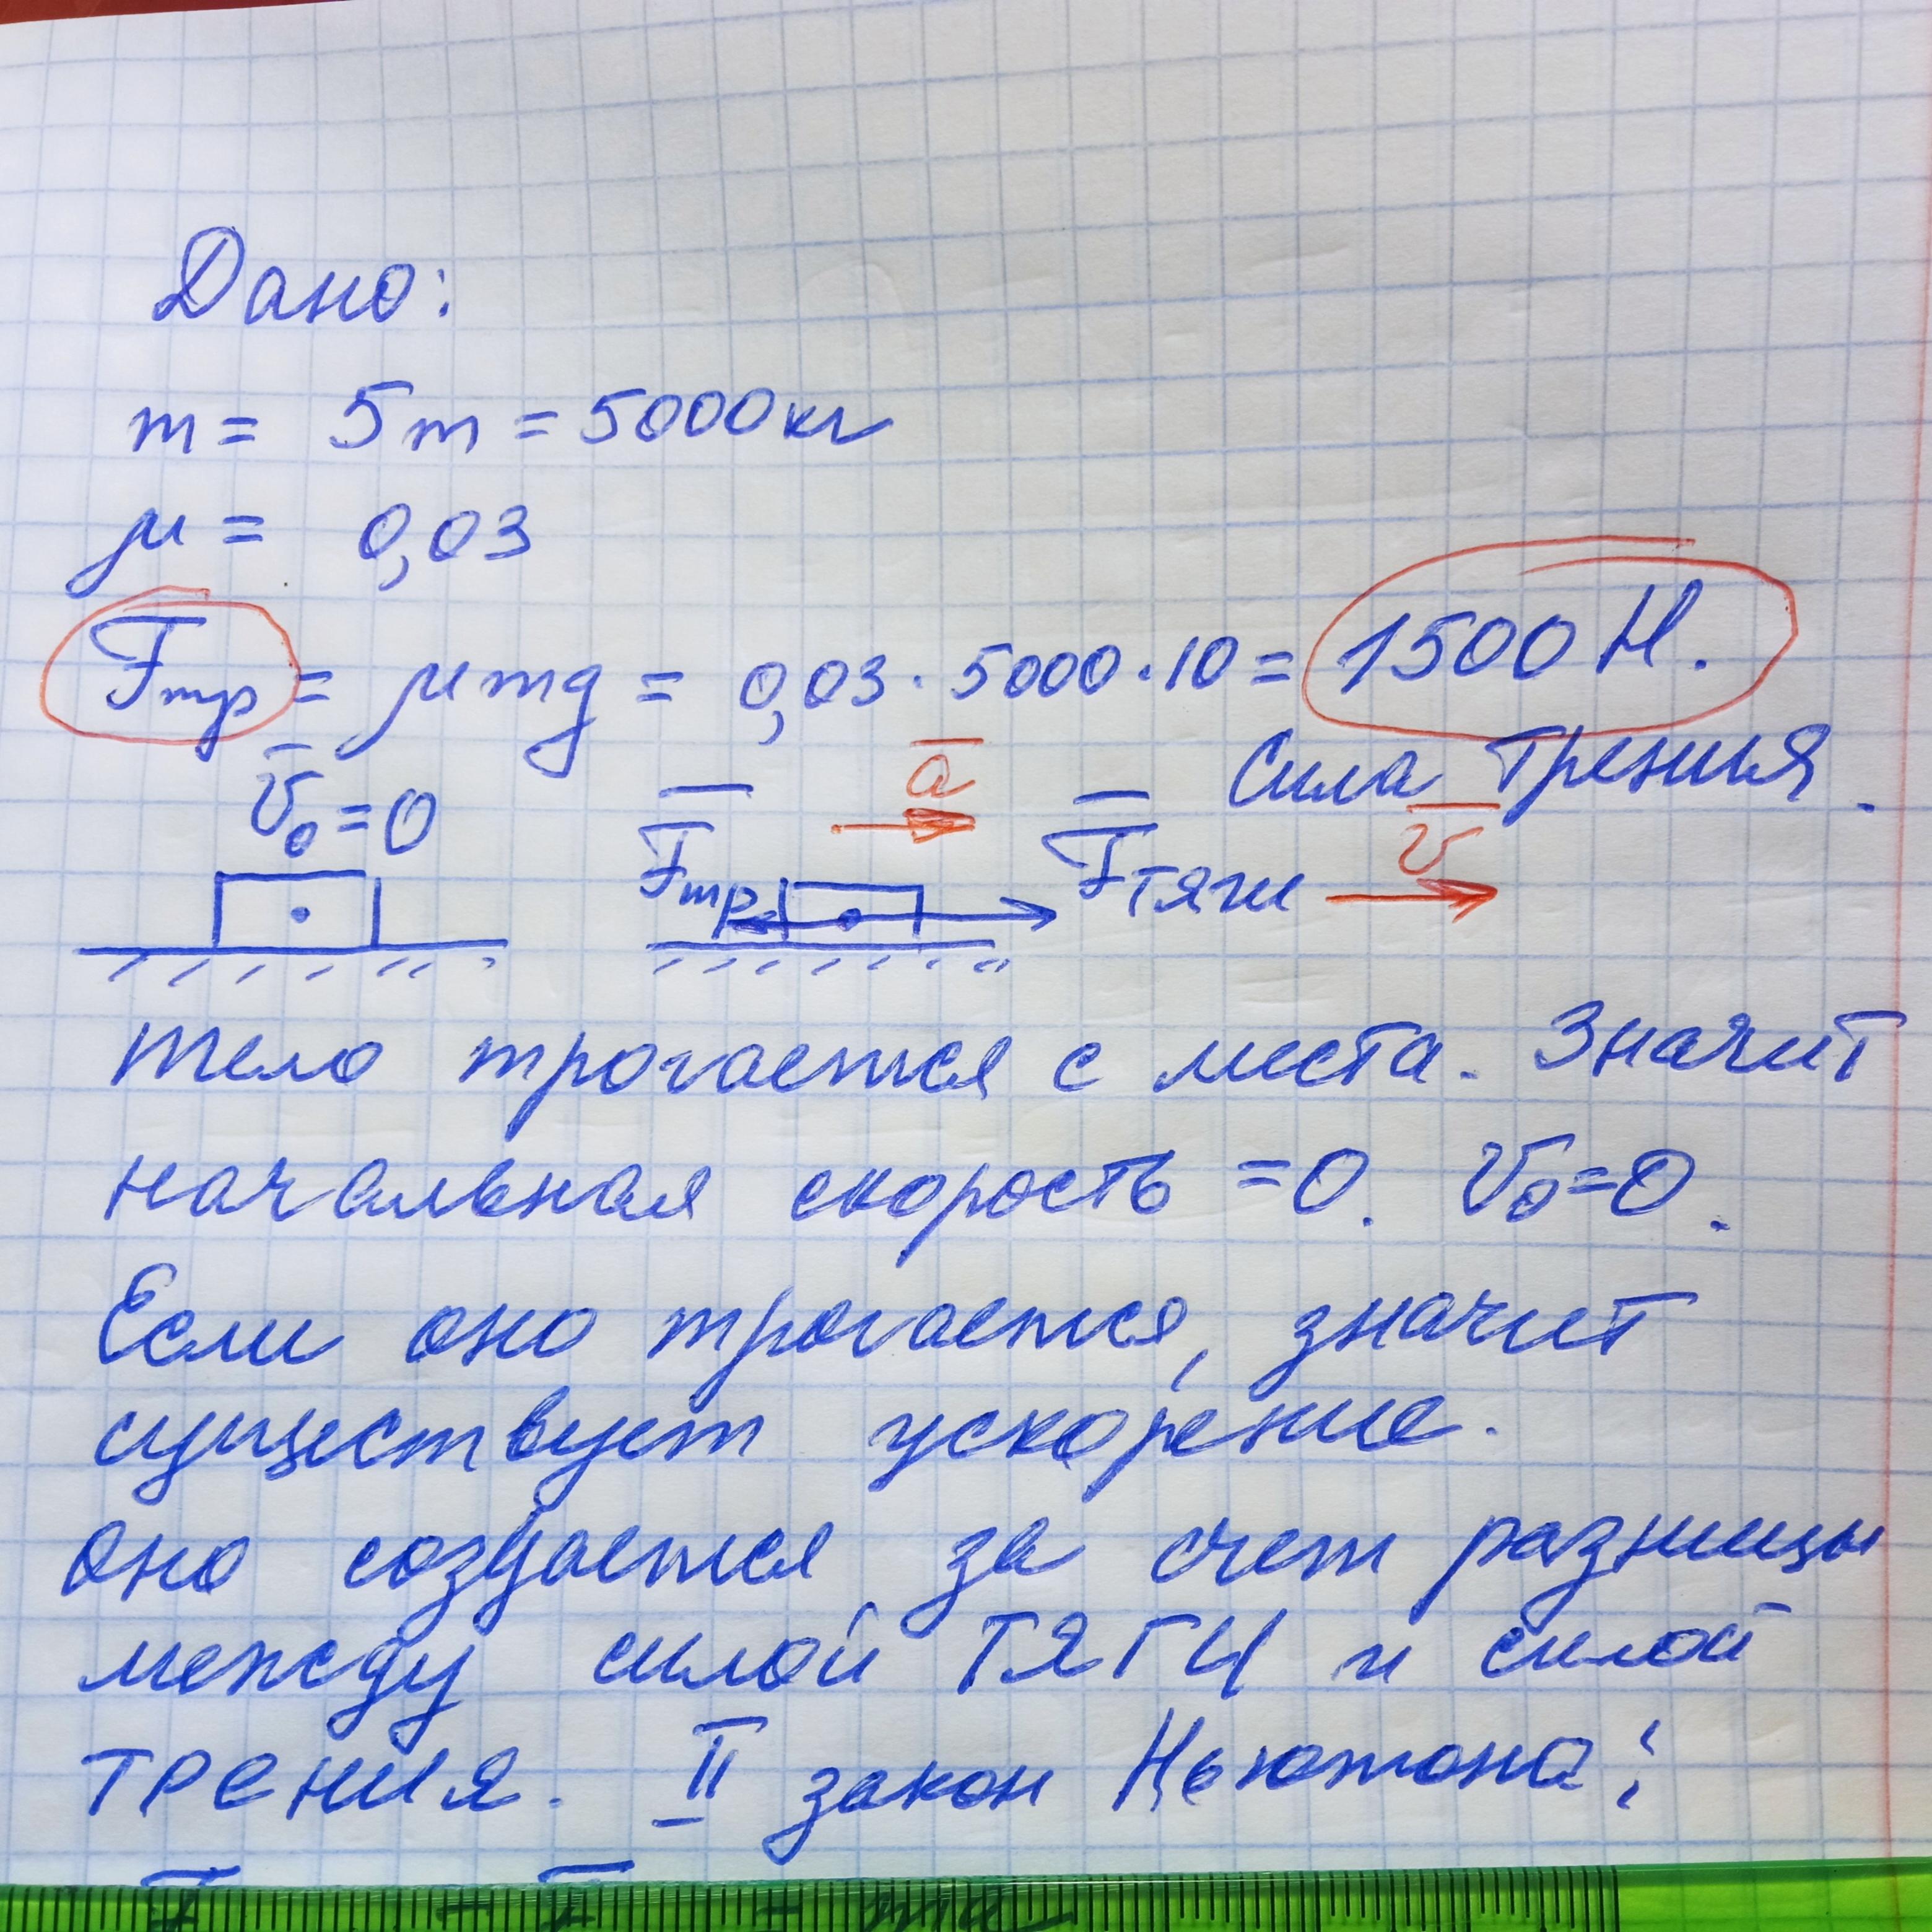 Дано:
m = 5т = 5000кг
μ = 0,03
Fтр = μmg = 0,03 · 5000 · 10 = 1500 Н.
Сила трения.
v₀ = 0
Fтр
a
Fтяги
v
тело трогается с места. Значит
начальная скорость = 0. v₀ = 0.
Если оно трогается, значит
существует ускорение.
Оно создается за счет разницы
между силой ТЯГИ и силой
трения. II закон Ньютона: